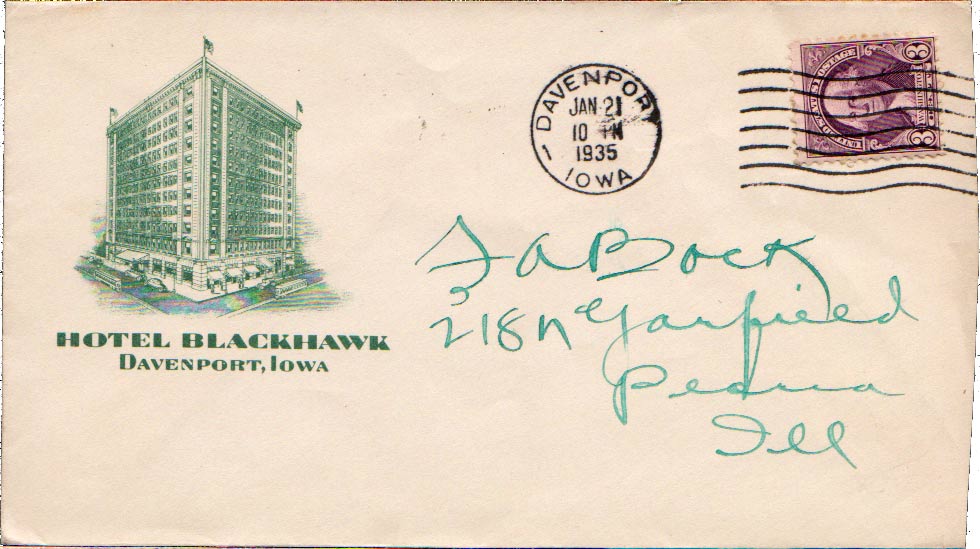 HOTEL BLACKHAWK
DAVENPORT, IOWA
DAVENPORT
JAN 21
10 PM
1935
1 IOWA
3 3
F A Bock
218 Ne Garfield
Peoria
Ill